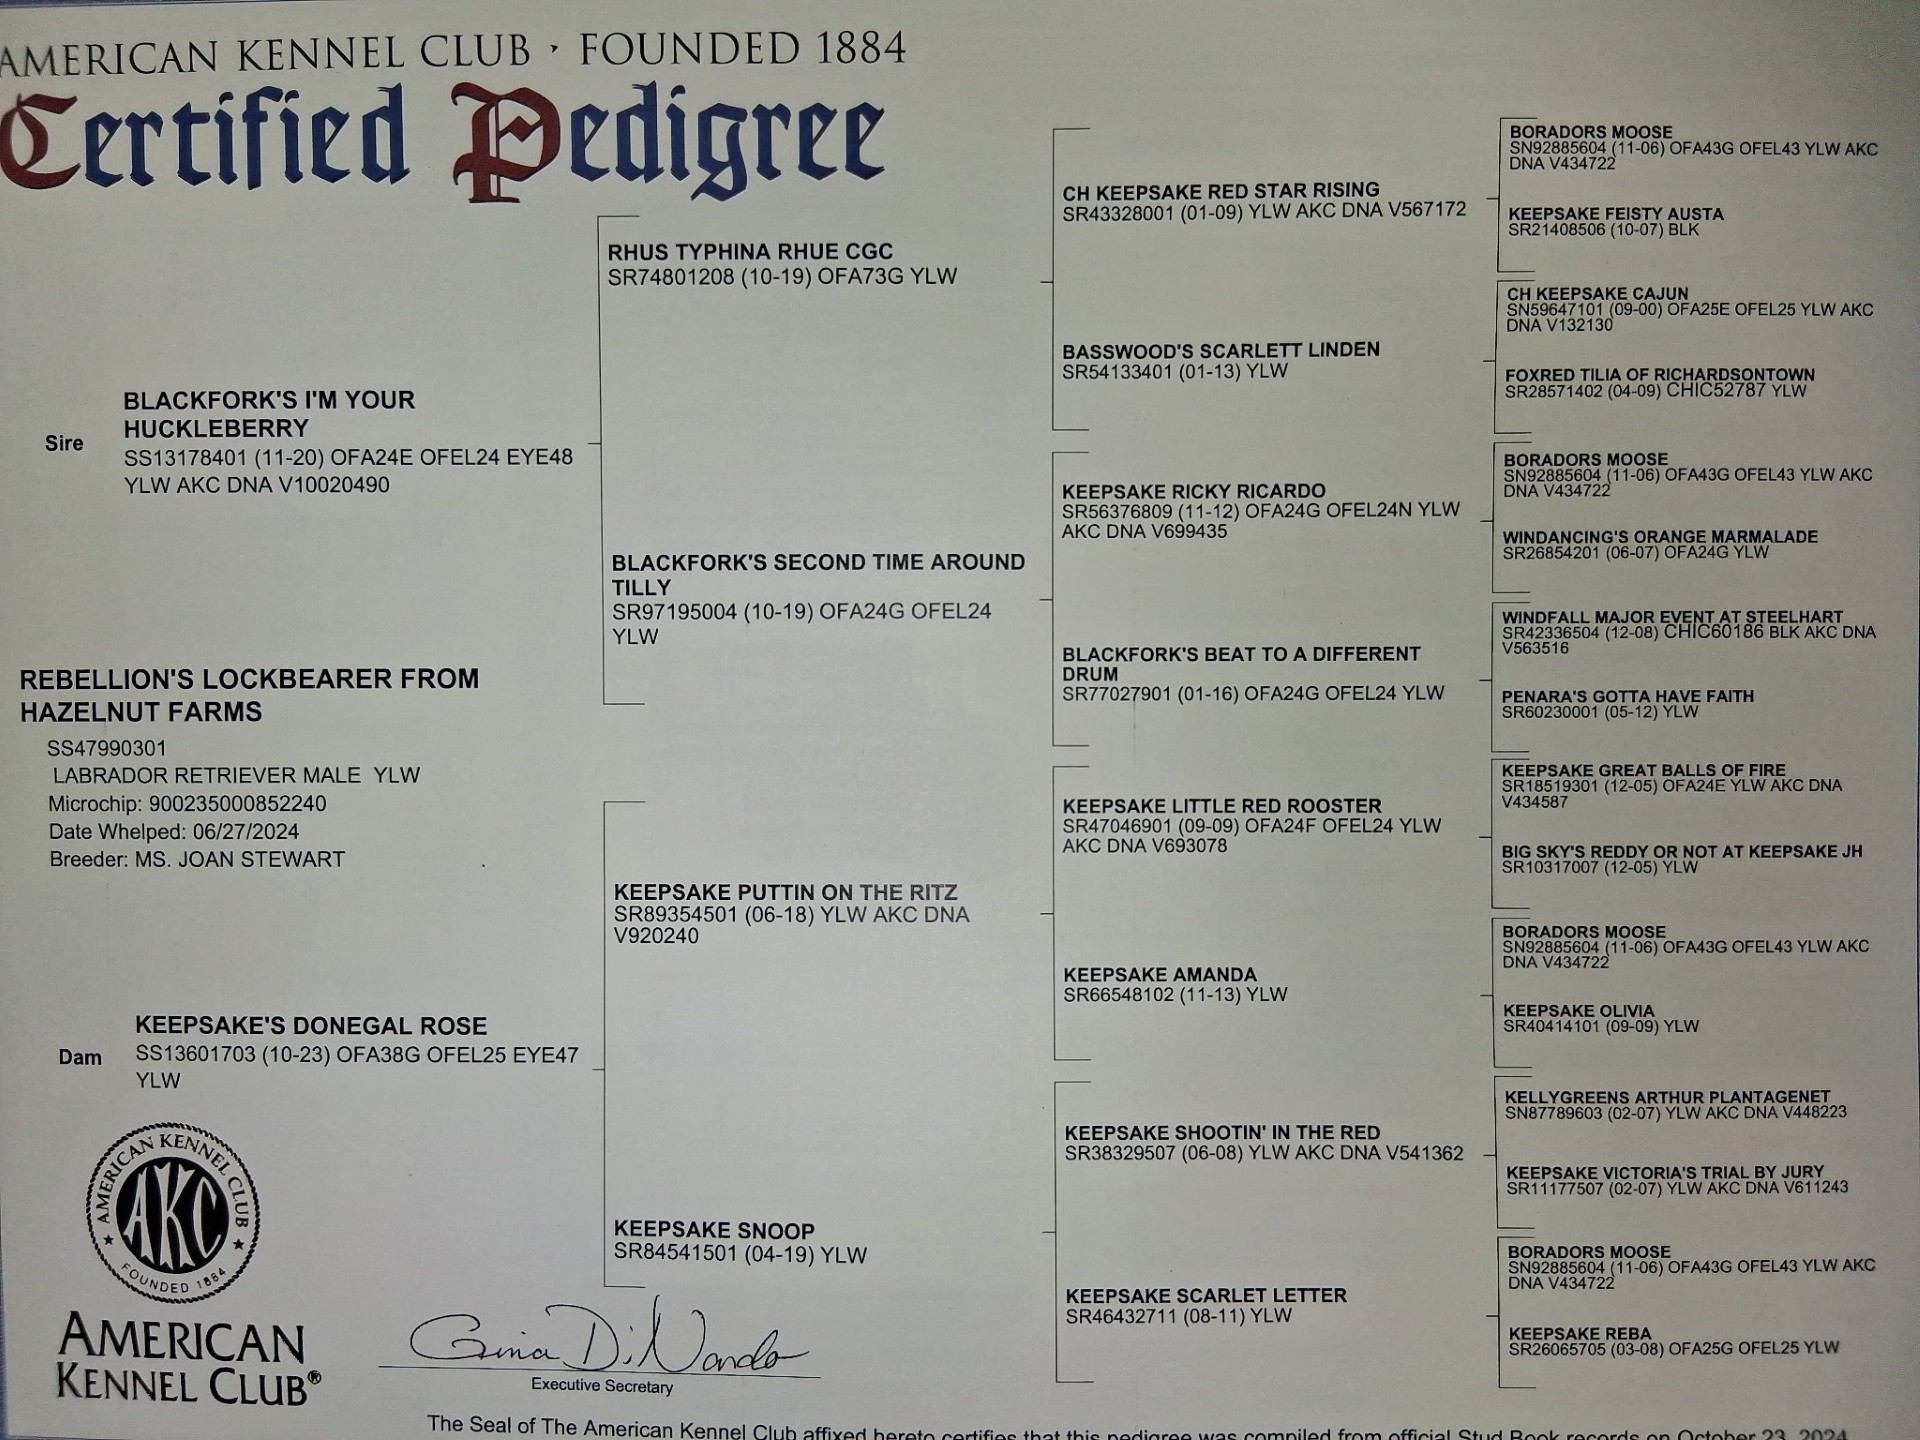 AMERICAN KENNEL CLUB • FOUNDED 1884
Certified Pedigree
Sire
BLACKFORK'S I'M YOUR
HUCKLEBERRY
SS13178401 (11-20) OFA24E OFEL24 EYE48
YLW AKC DNA V10020490
REBELLION'S LOCKBEARER FROM
HAZELNUT FARMS
SS47990301
LABRADOR RETRIEVER MALE YLW
Microchip: 900235000852240
Date Whelped: 06/27/2024
Breeder: MS. JOAN STEWART
Dam
KEEPSAKE'S DONEGAL ROSE
SS13601703 (10-23) OFA38G OFEL25 EYE47
YLW
RHUS TYPHINA RHUE CGC
SR74801208 (10-19) OFA73G YLW
BLACKFORK'S SECOND TIME AROUND
TILLY
SR97195004 (10-19) OFA24G OFEL24
YLW
KEEPSAKE PUTTIN ON THE RITZ
SR89354501 (06-18) YLW AKC DNA
V920240
KEEPSAKE SNOOP
SR84541501 (04-19) YLW
CH KEEPSAKE RED STAR RISING
SR43328001 (01-09) YLW AKC DNA V567172
BASSWOOD'S SCARLETT LINDEN
SR54133401 (01-13) YLW
KEEPSAKE RICKY RICARDO
SR56376809 (11-12) OFA24G OFEL24N YLW
AKC DNA V699435
BLACKFORK'S BEAT TO A DIFFERENT
DRUM
SR77027901 (01-16) OFA24G OFEL24 YLW
KEEPSAKE LITTLE RED ROOSTER
SR47046901 (09-09) OFA24F OFEL24 YLW
AKC DNA V693078
KEEPSAKE AMANDA
SR66548102 (11-13) YLW
KEEPSAKE SHOOTIN' IN THE RED
SR38329507 (06-08) YLW AKC DNA V541362
KEEPSAKE SCARLET LETTER
SR46432711 (08-11) YLW
BORADORS MOOSE
SN92885604 (11-06) OFA43G OFEL43 YLW AKC
DNA V434722
KEEPSAKE FEISTY AUSTA
SR21408506 (10-07) BLK
CH KEEPSAKE CAJUN
SN59647101 (09-00) OFA25E OFEL25 YLW AKC
DNA V132130
FOXRED TILIA OF RICHARDSONTOWN
SR28571402 (04-09) CHIC52787 YLW
BORADORS MOOSE
SN92885604 (11-06) OFA43G OFEL43 YLW AKC
DNA V434722
WINDANCING'S ORANGE MARMALADE
SR26854201 (06-07) OFA24G YLW
WINDFALL MAJOR EVENT AT STEELHART
SR42336504 (12-08) CHIC60186 BLK AKC DNA
V563516
PENARA'S GOTTA HAVE FAITH
SR60230001 (05-12) YLW
KEEPSAKE GREAT BALLS OF FIRE
SR18519301 (12-05) OFA24E YLW AKC DNA
V434587
BIG SKY'S REDDY OR NOT AT KEEPSAKE JH
SR10317007 (12-05) YLW
BORADORS MOOSE
SN92885604 (11-06) OFA43G OFEL43 YLW AKC
DNA V434722
KEEPSAKE OLIVIA
SR40414101 (09-09) YLW
KELLYGREENS ARTHUR PLANTAGENET
SN87789603 (02-07) YLW AKC DNA V448223
KEEPSAKE VICTORIA'S TRIAL BY JURY
SR11177507 (02-07) YLW AKC DNA V611243
BORADORS MOOSE
SN92885604 (11-06) OFA43G OFEL43 YLW AKC
DNA V434722
KEEPSAKE REBA
SR26065705 (03-08) OFA25G OFEL25 YLW
AMERICAN KENNEL CLUB
AKC
FOUNDED 1884
AMERICAN
KENNEL CLUB®
Gina DiNardo
Executive Secretary
The Seal of The American Kennel Club affixed hereto certifies that this pedigree was compiled from official Stud Book records on October 23, 2024